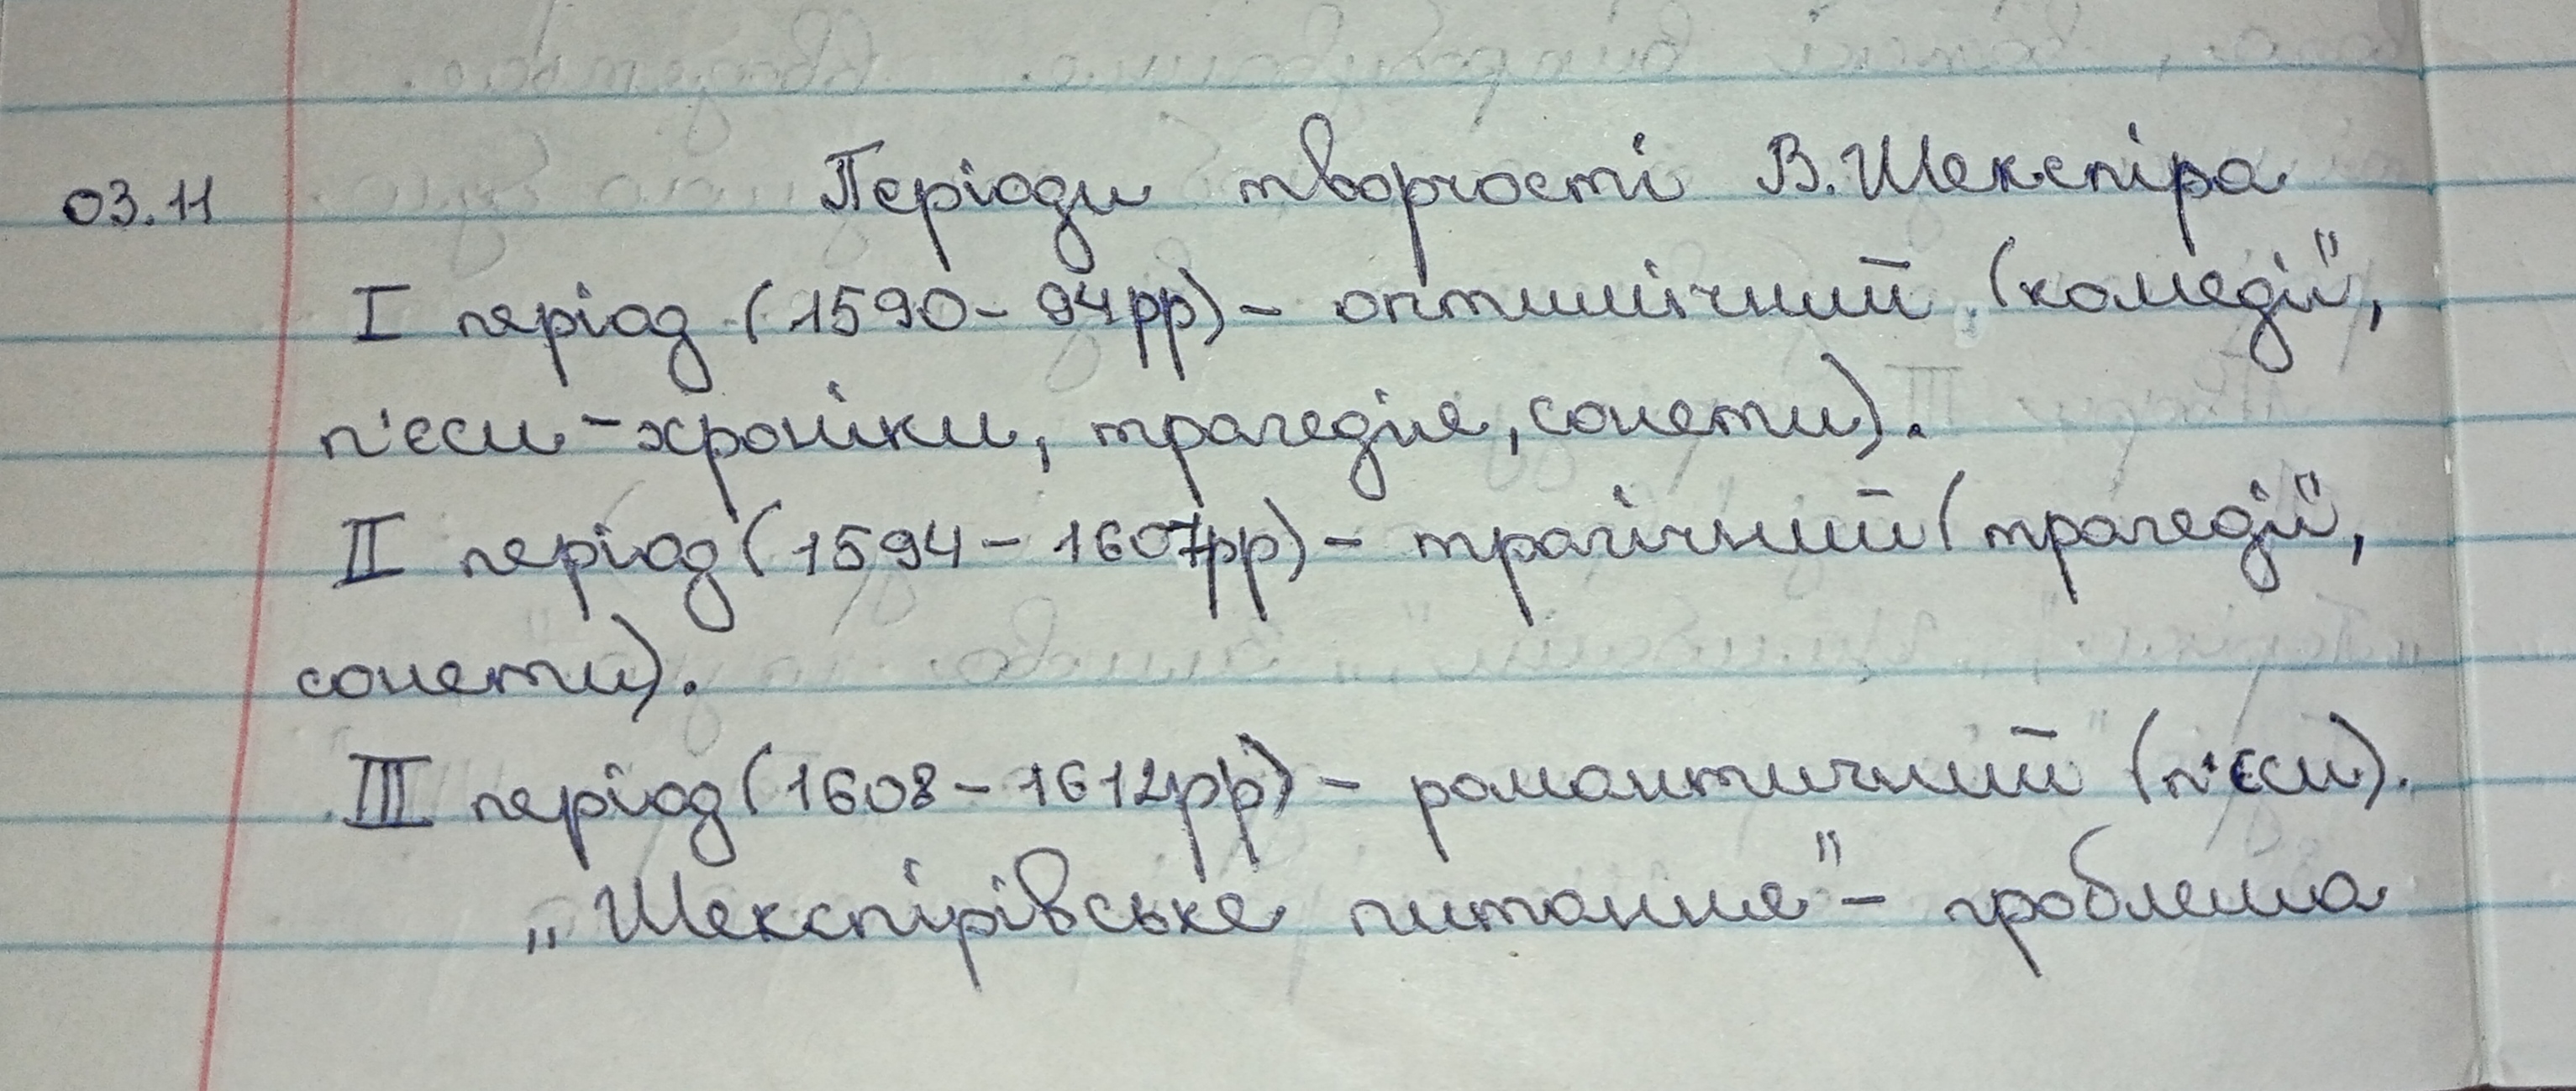 03.11 Періоди творчості В. Шекспіра
I період (1590 - 94рр) - оптимічний (комедії,
п'єси - хроніки, трагедія, сонети).
II період (1594 - 1607рр) - трагічний (трагедії,
сонети).
III період (1608 - 1612рр) - романтичний (п'єси).
„Шекспірівське питання" - проблема